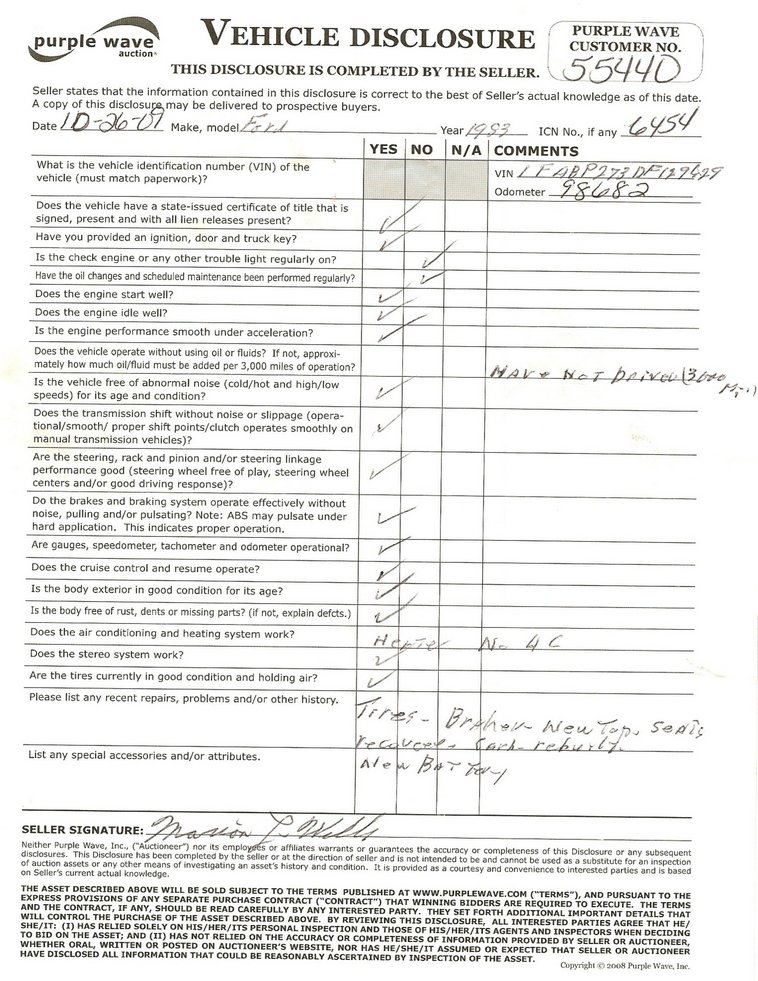 purple wave
auction®
VEHICLE DISCLOSURE
THIS DISCLOSURE IS COMPLETED BY THE SELLER.
PURPLE WAVE
CUSTOMER NO.
55440
Seller states that the information contained in this disclosure is correct to the best of Seller's actual knowledge as of this date.
A copy of this disclosure may be delivered to prospective buyers.
Date 10-26-09 Make, model Ford Year 1983 ICN No., if any 6454
YES NO N/A COMMENTS
What is the vehicle identification number (VIN) of the
vehicle (must match paperwork)?
VIN
Odometer 98682
Does the vehicle have a state-issued certificate of title that is
signed, present and with all lien releases present?
Have you provided an ignition, door and truck key?
Is the check engine or any other trouble light regularly on?
Have the oil changes and scheduled maintenance been performed regularly?
Does the engine start well?
Does the engine idle well?
Is the engine performance smooth under acceleration?
Does the vehicle operate without using oil or fluids? If not, approxi-
mately how much oil/fluid must be added per 3,000 miles of operation?
Have Not Drived 3000
Mi.
Is the vehicle free of abnormal noise (cold/hot and high/low
speeds) for its age and condition?
Does the transmission shift without noise or slippage (opera-
tional/smooth/ proper shift points/clutch operates smoothly on
manual transmission vehicles)?
Are the steering, rack and pinion and/or steering linkage
performance good (steering wheel free of play, steering wheel
centers and/or good driving response)?
Do the brakes and braking system operate effectively without
noise, pulling and/or pulsating? Note: ABS may pulsate under
hard application. This indicates proper operation.
Are gauges, speedometer, tachometer and odometer operational?
Does the cruise control and resume operate?
Is the body exterior in good condition for its age?
Is the body free of rust, dents or missing parts? (if not, explain defcts.)
Does the air conditioning and heating system work? Hepter No AC
Does the stereo system work?
Are the tires currently in good condition and holding air?
Please list any recent repairs, problems and/or other history.
Tires - New Top. Seats
recovered. Carb rebuilt.
List any special accessories and/or attributes.
New Battery
SELLER SIGNATURE: Marion L. Wills
Neither Purple Wave, Inc., ("Auctioneer") nor its employees or affiliates warrants or guarantees the accuracy or completeness of this Disclosure or any subsequent
disclosures. This Disclosure has been completed by the seller or at the direction of seller and is not intended to and cannot be used as a substitute for an inspection
of auction assets or any other means of investigating an asset's history and condition. It is provided as a courtesy and convenience to interested parties and is based
on Seller's current actual knowledge.
THE ASSET DESCRIBED ABOVE WILL BE SOLD SUBJECT TO THE TERMS PUBLISHED AT WWW.PURPLEWAVE.COM ("TERMS"), AND PURSUANT TO THE
EXPRESS PROVISIONS OF ANY SEPARATE PURCHASE CONTRACT ("CONTRACT") THAT WINNING BIDDERS ARE REQUIRED TO EXECUTE. THE TERMS
AND THE CONTRACT, IF ANY, SHOULD BE READ CAREFULLY BY ANY INTERESTED PARTY. THEY SET FORTH ADDITIONAL IMPORTANT DETAILS THAT
WILL CONTROL THE PURCHASE OF THE ASSET DESCRIBED ABOVE. BY REVIEWING THIS DISCLOSURE, ALL INTERESTED PARTIES AGREE THAT HE/
SHE/IT: (I) HAS RELIED SOLELY ON HIS/HER/ITS PERSONAL INSPECTION AND THOSE OF HIS/HER/ITS AGENTS AND INSPECTORS WHEN DECIDING
TO BID ON THE ASSET; AND (II) HAS NOT RELIED ON THE ACCURACY OR COMPLETENESS OF INFORMATION PROVIDED BY SELLER OR AUCTIONEER,
WHETHER ORAL, WRITTEN OR POSTED ON AUCTIONEER'S WEBSITE, NOR HAS HE/SHE/IT ASSUMED OR EXPECTED THAT SELLER OR AUCTIONEER
HAVE DISCLOSED ALL INFORMATION THAT COULD BE REASONABLY ASCERTAINED BY INSPECTION OF THE ASSET.
Copyright © 2008 Purple Wave, Inc.